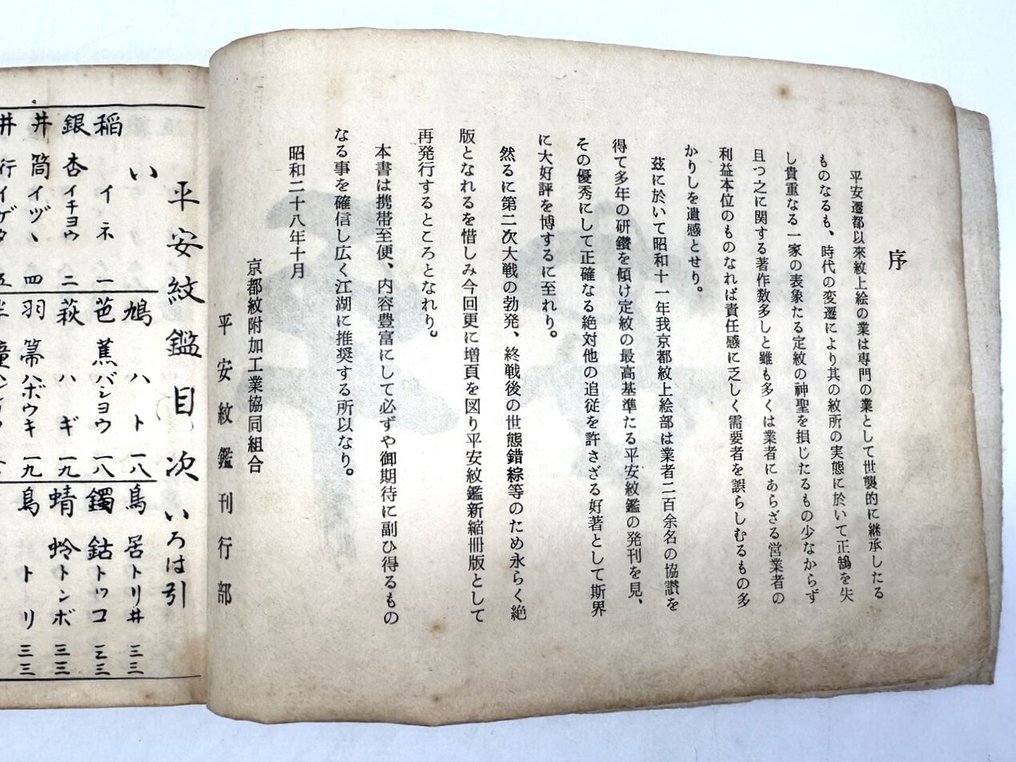 序
平安遷都以來紋上絵の業は専門の業として世襲的に継承したる
ものなるも、時代の変遷により其の紋所の実態に於いて正鵠を失
し貴重なる一家の表象たる定紋の神聖を損じたるもの少なからず
且つ之に関する著作数多しと雖も多くは業者にあらざる営業者の
利益本位のものなれば責任感に乏しく需要者を誤らしむるもの多
かりしを遺感とせり。
茲に於いて昭和十一年我京都紋上絵部は業者二百余名の協讃を
得て多年の研鑽を傾け定紋の最高基準たる平安紋鑑の発刊を見、
その優秀にして正確なる絶対他の追従を許さざる好著として斯界
に大好評を博するに至れり。
然るに第二次大戦の勃発、終戦後の世態錯綜等のため永らく絶
版となれるを惜しみ今回更に増頁を図り平安紋鑑新縮冊版として
再発行するところとなれり。
本書は携帯至便、内容豊富にして必ずや御期待に副ひ得るもの
なる事を確信し広く江湖に推奨する所以なり。
昭和二十八年十月
京都紋附加工業協同組合
平安紋鑑刊行部
平安紋鑑目次 いろは引
い
稲 イネ 一
銀杏 イチヨウ 二
井筒 イヅヽ 四
井行 イゲタ 五
鳩 ハト 一八
芭蕉 バシヨウ 一八
萩 ハギ 一九
羽箒 ハボウキ 一九
鳥居 トリ井 三三
鐲鈷 トッコ 三三
蜻蛉 トンボ 三三
鳥 トリ 三三